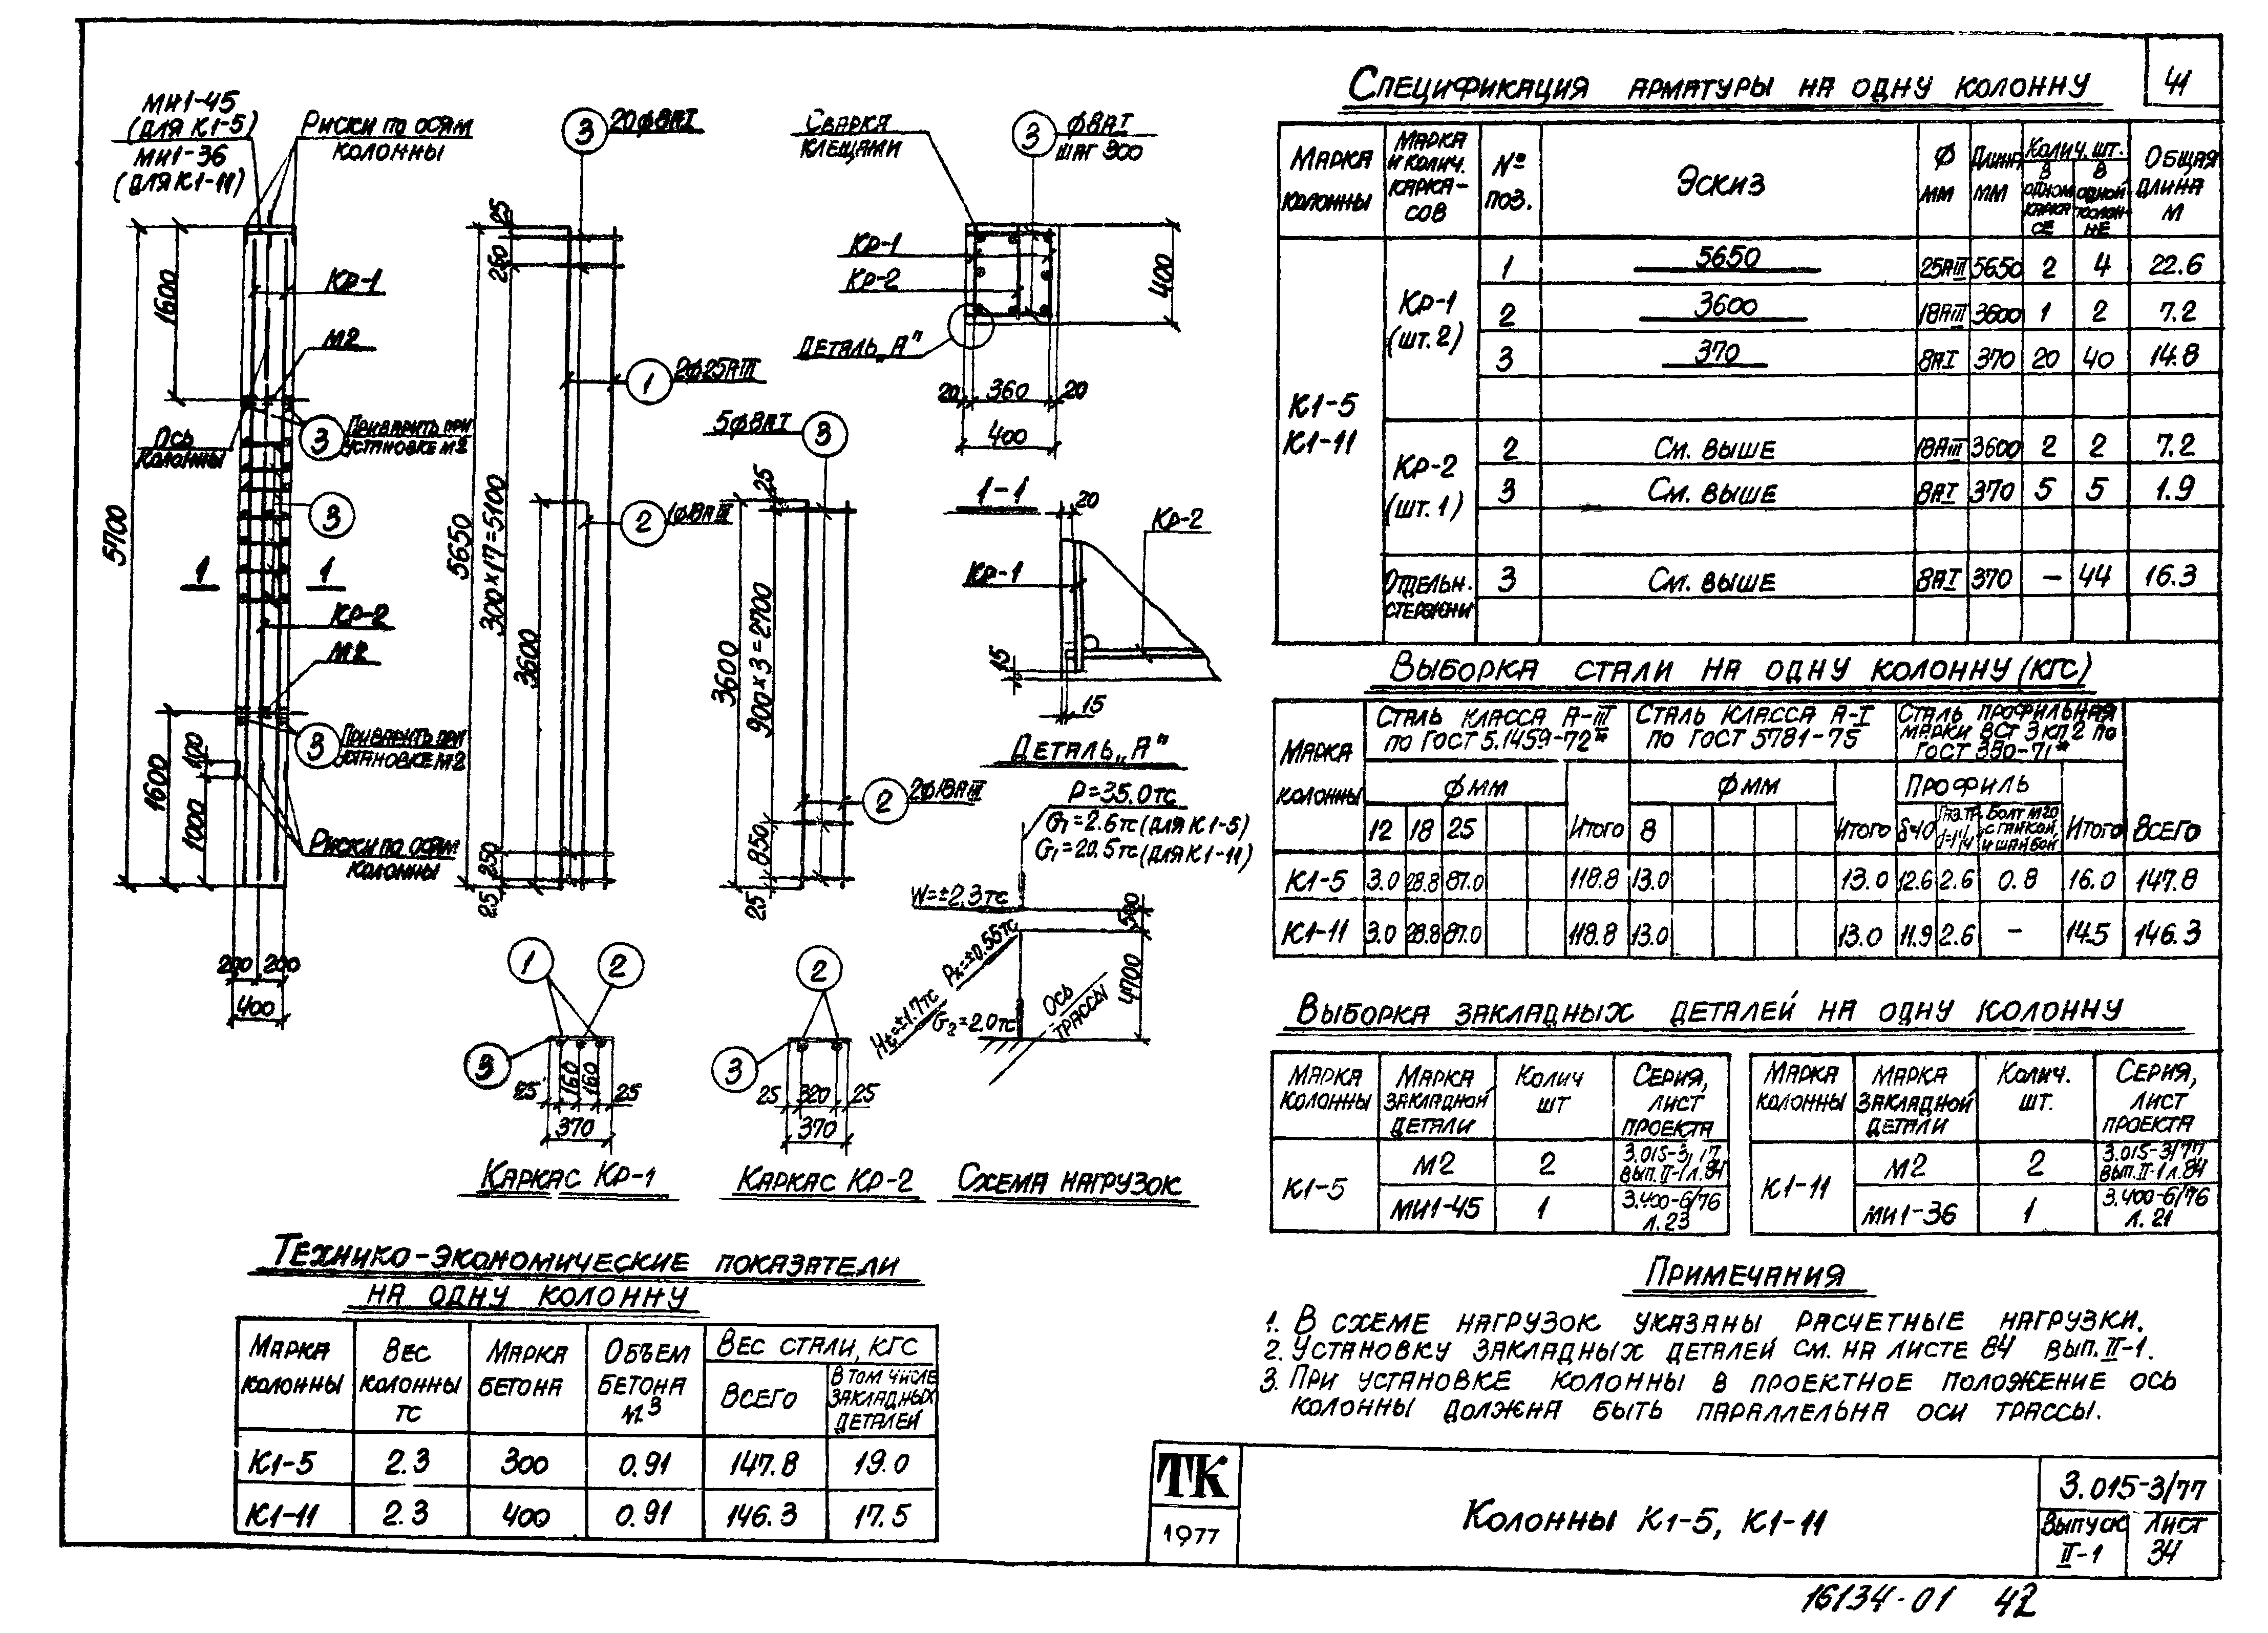 41
МН1-45
(для К1-5)
МН1-36
(для К1-11)
Риски по осям
колонны
1600
Кр-1
М2
Ось
колонны
3
Приварить при
установке М2
3
5700
1
1
Кр-2
М2
3
Приварить при
установке М2
1600
100
1000
Риски по осям
колонны
200
200
400
3
20ф8АI
25
250
5650
300×17=5100
1
2ф25АIII
2
1ф18АIII
3600
250
25
5ф8АI
3
25
3600
900×3=2700
850
25
2
2ф18АIII
Сварка
клещами
3
ф8АI
шаг 300
Кр-1
Кр-2
Деталь „А"
400
20
360
20
400
1-1
20
Кр-2
Кр-1
15
15
Деталь „А"
Р=35.0тс
G1=2.6тс (для К1-5)
G1=20.5тс (для К1-11)
W=±2.3тс
500
Рх=±0.55тс
4700
Нt=±1.7тс
G2=2.0тс
Ось
трассы
Схема нагрузок
1
2
3
25
160
160
25
370
Каркас Кр-1
2
3
25
320
25
370
Каркас Кр-2
Технико-экономические показатели
на одну колонну
Марка колонны
Вес колонны тс
Марка бетона
Объем бетона м3
Вес стали, кгс
Всего
В том числе закладных деталей
К1-5 2.3 300 0.91 147.8 19.0
К1-11 2.3 400 0.91 146.3 17.5
Спецификация арматуры на одну колонну
Марка колонны
Марка и колич. карка-сов
№ поз.
Эскиз
ф мм
Длина мм
Колич. шт.
В одном каркасе
В одной колон-не
Общая длина м
К1-5
К1-11
Кр-1
(шт. 2)
1 5650 25АIII 5650 2 4 22.6
2 3600 18АIII 3600 1 2 7.2
3 370 8АI 370 20 40 14.8
Кр-2
(шт. 1)
2 См. выше 18АIII 3600 2 2 7.2
3 См. выше 8АI 370 5 5 1.9
Отдельн.
стержни
3 См. выше 8АI 370 – 44 16.3
Выборка стали на одну колонну (кгс)
Марка колонны
Сталь класса А-III
по ГОСТ 5.1459-72*
Сталь класса А-I
по ГОСТ 5781-75
Сталь профильная
марки ВСт 3 кп 2 по
ГОСТ 380-71*
ф мм
ф мм
Профиль
12 18 25 Итого 8 Итого
Болт М20 с гайкой и шайбой
Итого
Всего
К1-5 3.0 28.8 87.0 118.8 13.0 13.0 12.6 2.6 0.8 16.0 147.8
К1-11 3.0 28.8 87.0 118.8 13.0 13.0 11.9 2.6 – 14.5 146.3
Выборка закладных деталей на одну колонну
Марка колонны
Марка закладной детали
Колич шт
Серия, лист проекта
К1-5
М2 2 3.015-3/77 вып. II-1 л.84
МН1-45 1 3.400-6/76 л. 23
Марка колонны
Марка закладной детали
Колич. шт.
Серия, лист проекта
К1-11
М2 2 3.015-3/77 вып. II-1 л.84
МН1-36 1 3.400-6/76 л. 21
Примечания
1. В схеме нагрузок указаны расчетные нагрузки.
2. Установку закладных деталей см. на листе 84 вып. II-1.
3. При установке колонны в проектное положение ось
колонны должна быть параллельна оси трассы.
ТК
1977
Колонны К1-5, К1-11
3.015-3/77
Выпуск
II-1
Лист
34
16134-01 42